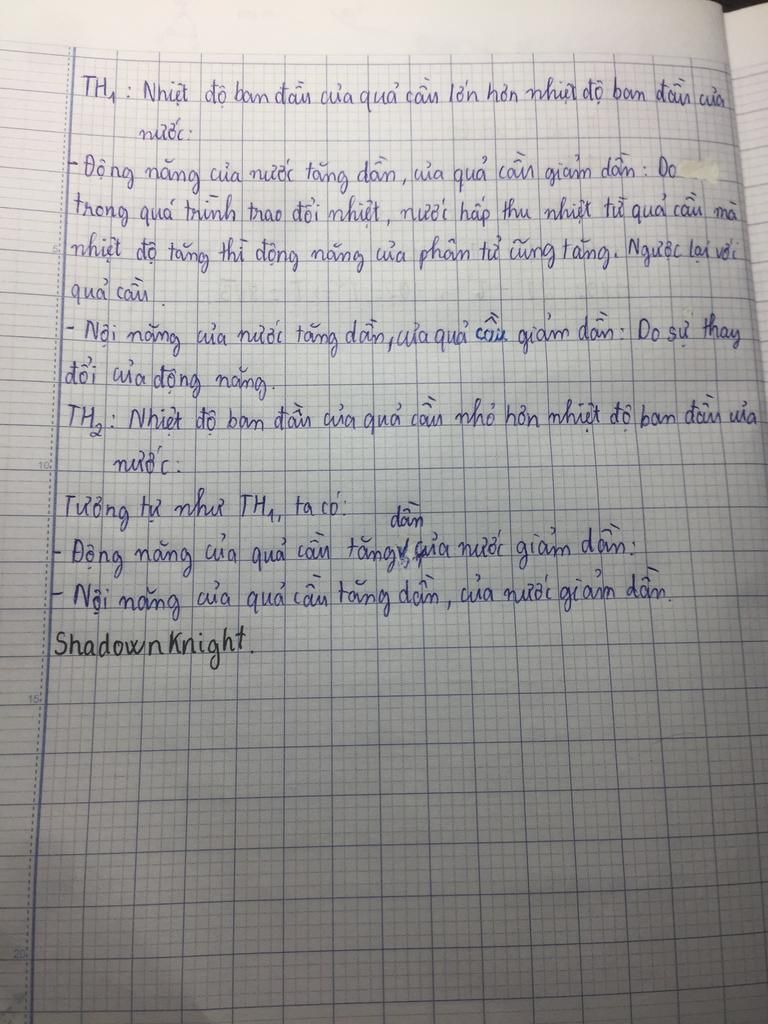 TH₁: Nhiệt độ ban đầu của quả cầu lớn hơn nhiệt độ ban đầu của
nước:
- Động năng của nước tăng dần, của quả cầu giảm dần: Do
trong quá trình trao đổi nhiệt, nước hấp thu nhiệt từ quả cầu mà
nhiệt độ tăng thì động năng của phân tử cũng tăng. Ngược lại với
quả cầu.
- Nội năng của nước tăng dần, của quả cầu giảm dần: Do sự thay
đổi của động năng.
TH₂: Nhiệt độ ban đầu của quả cầu nhỏ hơn nhiệt độ ban đầu của
nước:
Tương tự như TH₁, ta có:
- Động năng của quả cầu tăng dần, của nước giảm dần:
- Nội năng của quả cầu tăng dần, của nước giảm dần.
Shadown Knight.
5
10
15
20